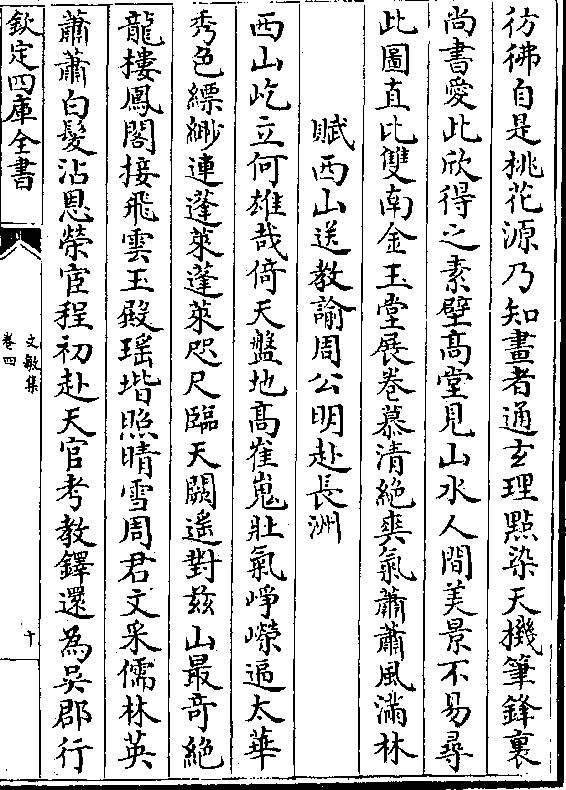 彷彿自是桃花源乃知畫者通玄理㸃染天機筆鋒裏
尚書愛此欣得之素壁髙堂見山水人間美景不易尋
此圖直比雙南金玉堂展卷慕清絶爽氣蕭蕭風滿林
賦西山送教諭周公明赴長洲
西山屹立何雄哉倚天盤地髙崔嵬壯氣崢嶸逼太華
秀色縹緲連蓬萊蓬萊咫尺臨天闕遥對兹山最竒絶
龍樓鳳閣接飛雲玉殿瑶堦照晴雪周君文采儒林英
蕭蕭白髮沾恩榮宦程初赴天官考教鐸還為吳郡行
欽定四庫全書
文敏集
卷四
十